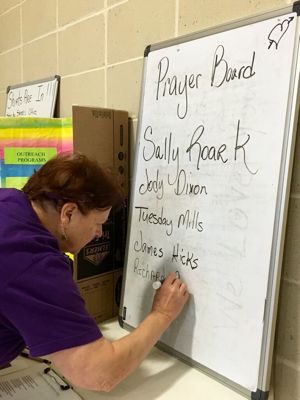 Prayer Board
Sally Roark
Jody Dixon
Tuesday Mills
James Hicks
Shirts Are In !!!
OUTREACH
PROGRAMS